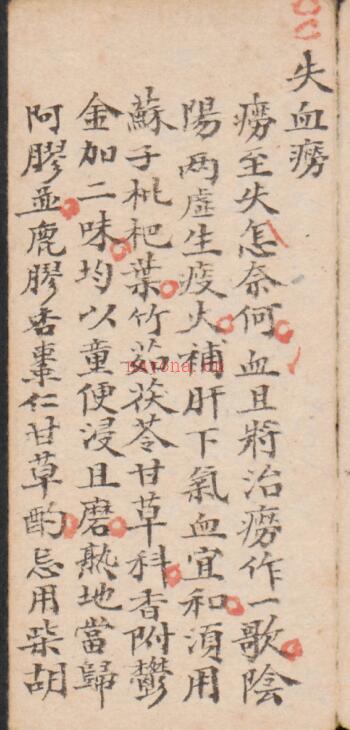 失血癆
癆至失怎奈何血且將治癆作一歌陰
陽两虛生痰火補肝下氣血宜和須用
蘇子枇杷葉竹茹茯苓甘草科香附鬱
金加二味均以童便浸且磨熟地當歸
阿膠並鹿膠杏棗仁甘草酌忌用柴胡
nayona.cn